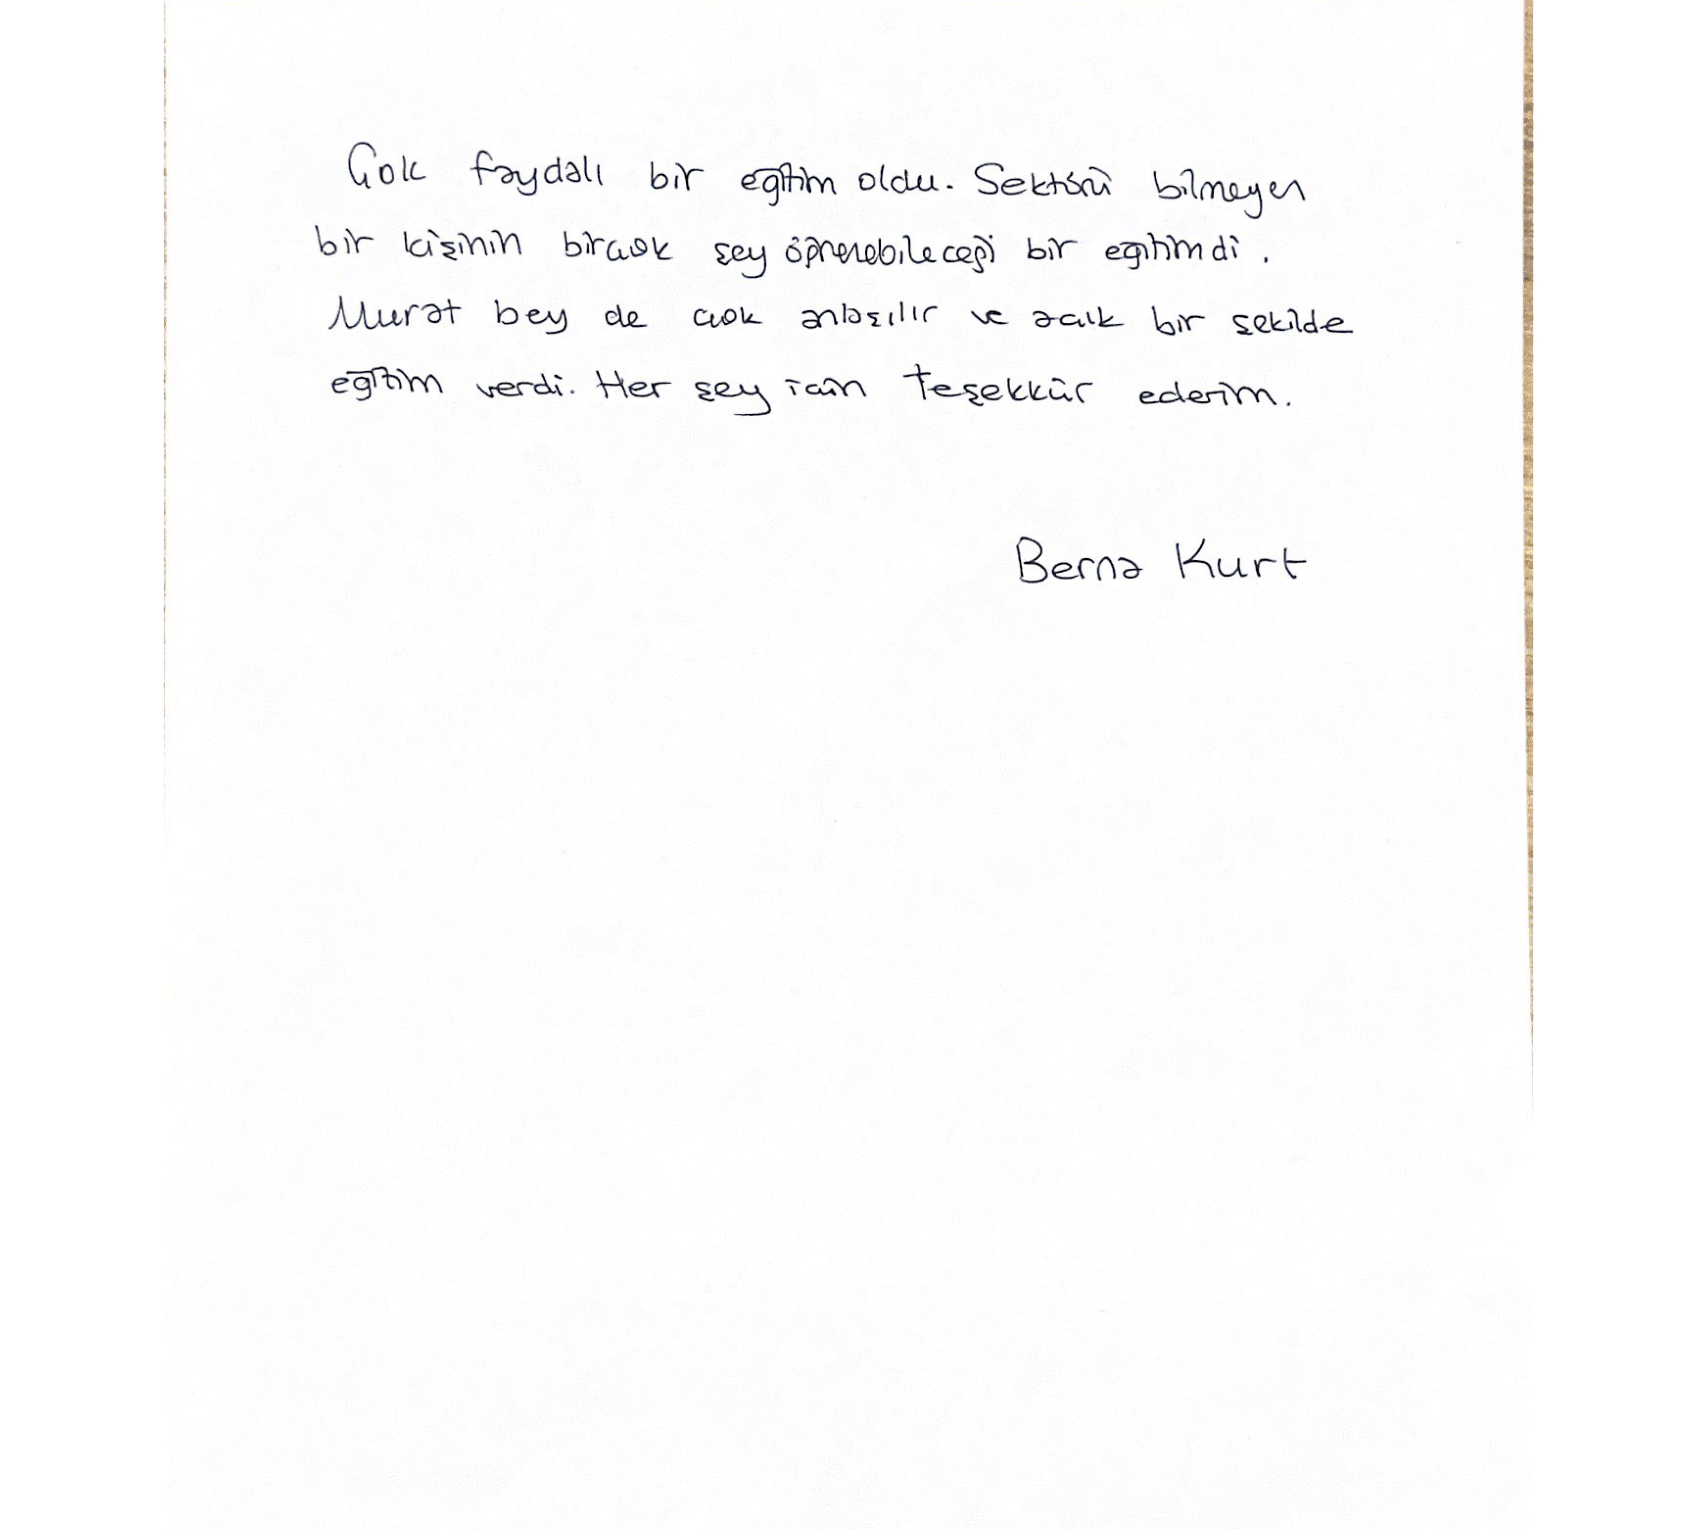 Çok faydalı bir eğitim oldu. Sektörü bilmeyen
bir kişinin birçok şey öğrenebileceği bir eğitimdi.
Murat bey de çok anlaşılır ve açık bir şekilde
eğitim verdi. Her şey için teşekkür ederim.
Berna Kurt